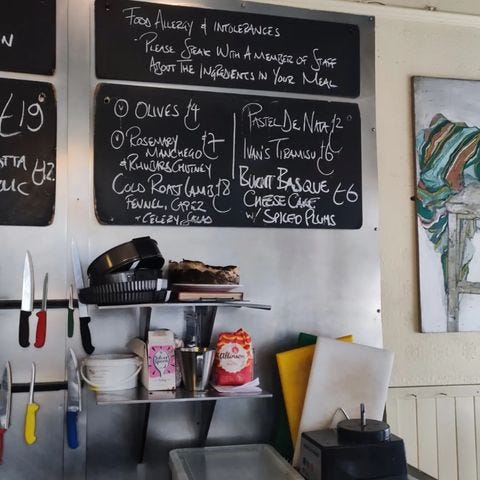 Food Allergy & Intolerances
Please Speak With A Member of Staff
About The Ingredients in Your Meal
N
£19
ATTA
£12
LIC
V Olives £4
V Rosemary
Manchego £7
& Rhubarb Chutney
Cold Roast Lamb £8
Fennel, Caper
& Celery Salad
Pastel De Nata £2
Ivan's Tiramisu £6
Burnt Basque
Cheese Cake £6
w/ Spiced Plums